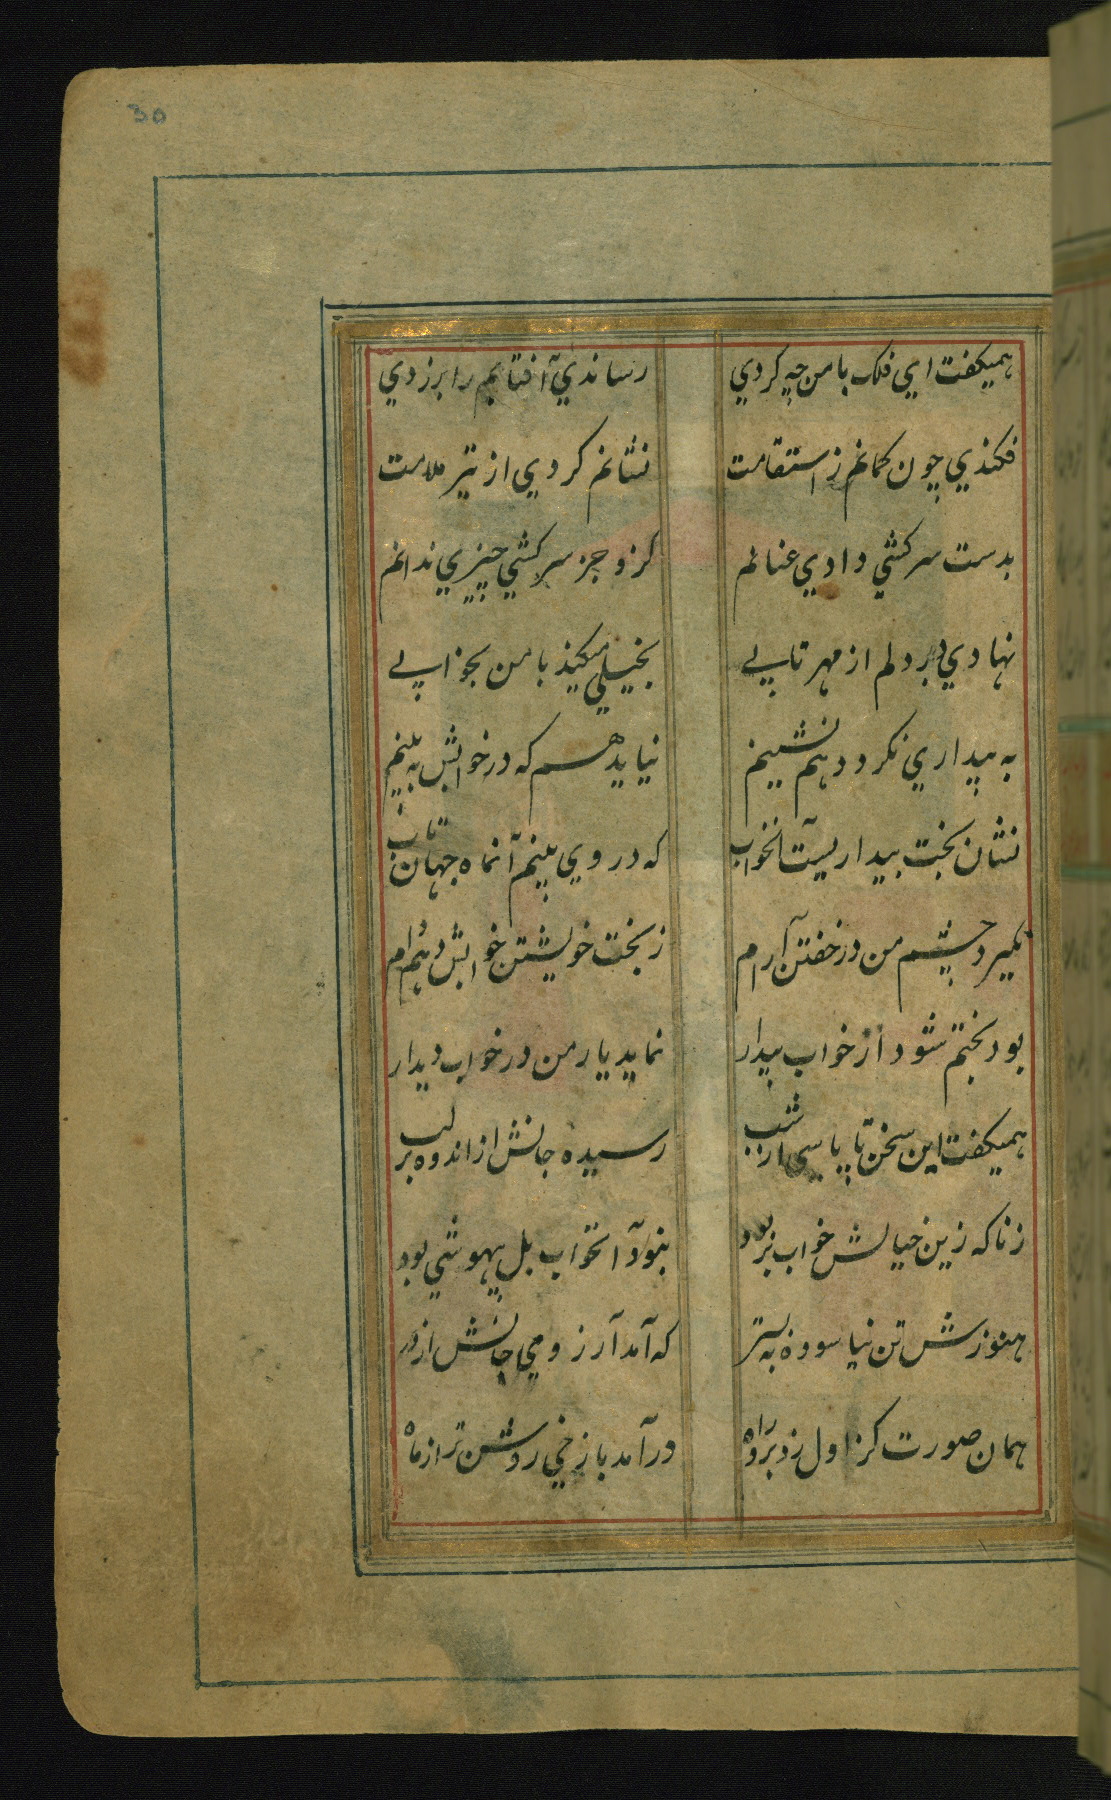 30
همیکفت ای فلک با من چه کردی رساندی آفتابم را بزردی
فکندی چون کمانم ز استقامت نشانم کردی از تیر ملامت
بدست سرکشی دادی عنانم کزو جز سرکشی چیزی ندانم
نهادی بر دلم از مهر تابی بخیلی میکند با من بخوابی
به بیداری نکردد همنشینم نیاید هم که در خوابش به بینم
نشان بخت بیداریست آنخواب که در وی بینم آنماه جهان تاب
نکیرد چشم من در خفتن آرام ز بخت خویشتن خوابش دهم وام
بود بختم شود از خواب بیدار نماید یار من در خواب دیدار
همیکفت این سخن تا پاسی از شب رسیده جانش از اندوه بر لب
ز ناکه زین خیالش خواب بربود نبود آنخواب بل بیهوشی بود
هنوزش تن نیاسوده به بستر که آمد آرزوی جانش از در
همان صورت کز اول زد برو راه درآمد با رخی روشن تر از ماه